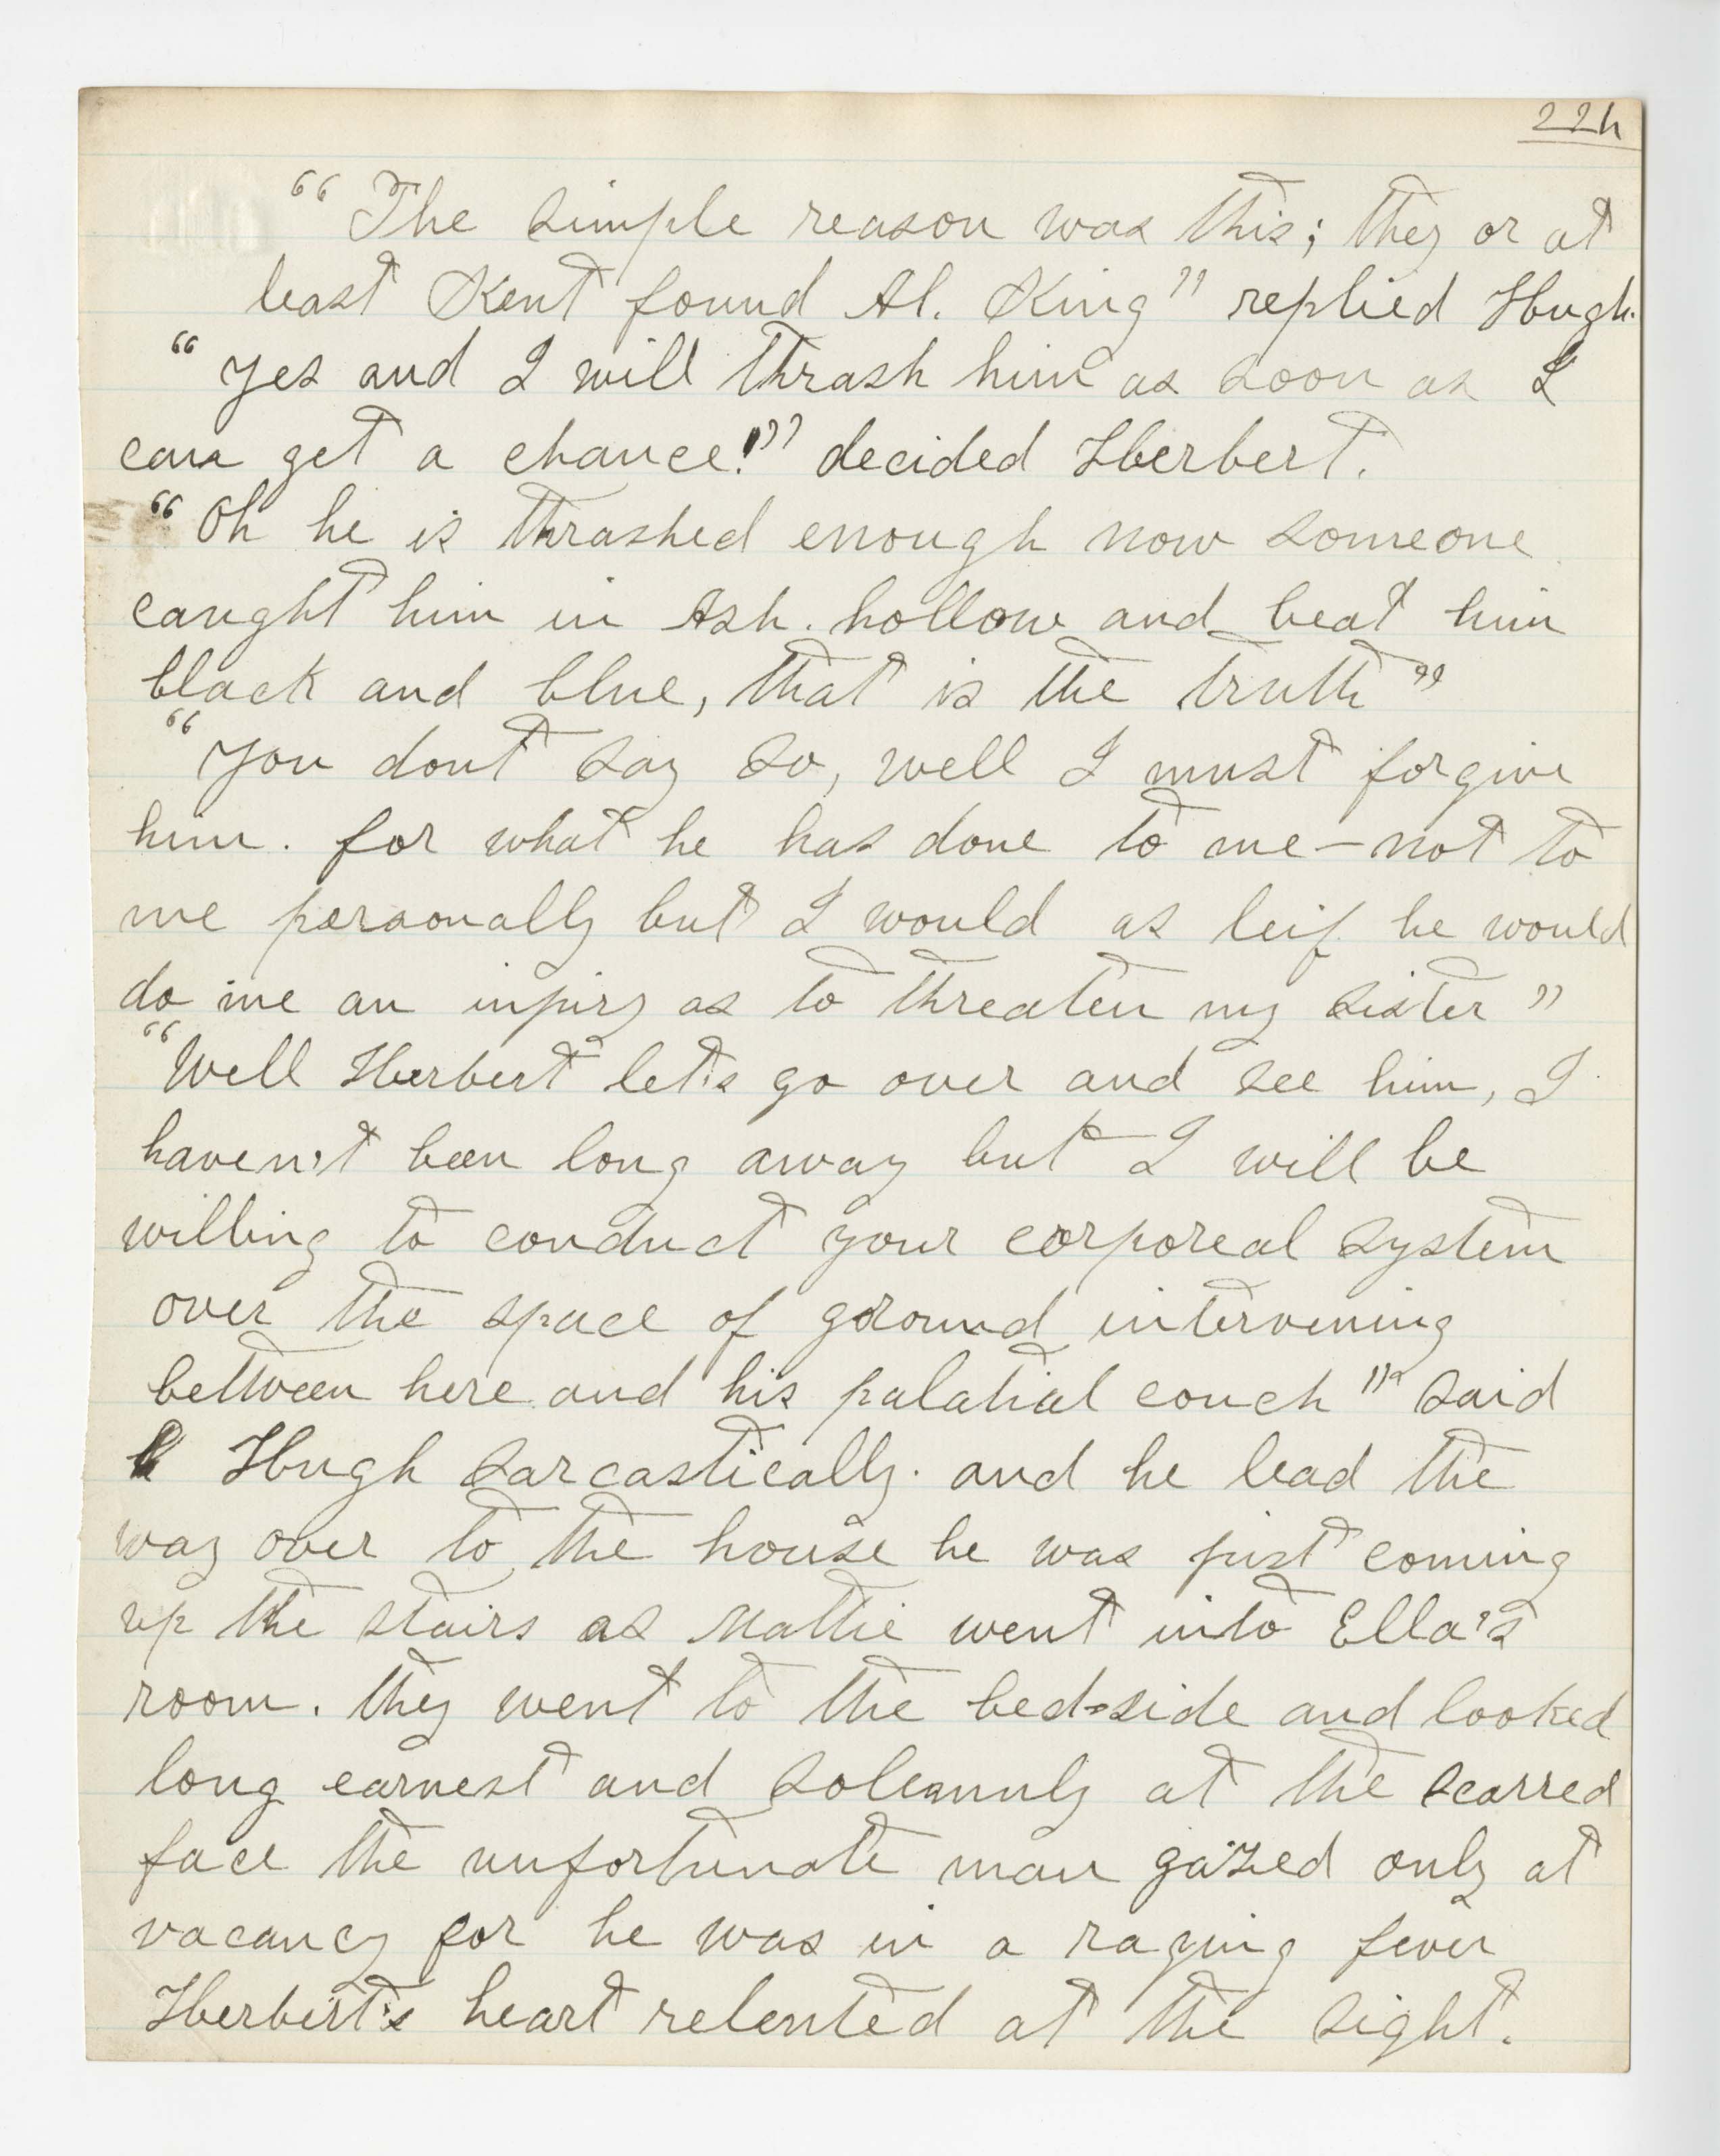 224
“The simple reason was this; they or at
least Kent found Al. King” replied Hugh.
“Yes and I will thrash him as soon as I
can get a chance!” decided Herbert.
“Oh he is thrashed enough now someone
caught him in Ash. hollow and beat him
black and blue, that is the truth”
“You dont say so, well I must forgive
him. for what he has done to me—not to
me personally but I would as leif he would
do me an injury as to threaten my sister”
“Well Herbert let's go over and see him, I
haven't been long away but I will be
willing to conduct your corporeal system
over the space of ground intervening
between here and his palatial couch” said
Hugh sarcastically. and he lead the
way over to the house he was just coming
up the stairs as Mattie went into Ella's
room. they went to the bed-side and looked
long earnest and solemnly at the scarred
face the unfortunate man gazed only at
vacancy for he was in a raging fever
Herbert's heart relented at the sight.